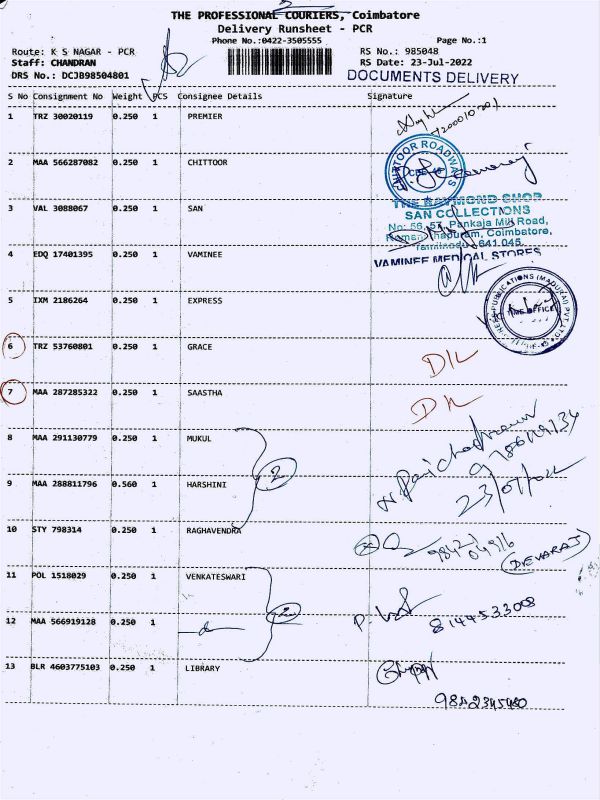 THE PROFESSIONAL COURIERS, Coimbatore
Delivery Runsheet - PCR
Phone No.:0422-3505555 Page No.:1
Route: K S NAGAR - PCR RS No.: 985048
Staff: CHANDRAN RS Date: 23-Jul-2022
DRS No.: DCJB98504801 DOCUMENTS DELIVERY
S No Consignment No Weight PCS Consignee Details Signature
1 TRZ 30020119 0.250 1 PREMIER
2 MAA 566287082 0.250 1 CHITTOOR
ROADWAYS
THE RAYMOND SHOP
3 VAL 3088067 0.250 1 SAN
SAN COLLECTIONS
No: 56, 57, Pankaja Mill Road,
Coimbatore,
Tamilnadu 641 045.
4 EDQ 17401395 0.250 1 VAMINEE
VAMINEE MEDICAL STORES
5 IXM 2186264 0.250 1 EXPRESS
PUBLICATIONS (MADURAI) PVT LTD
TIME OFFICE
6 TRZ 53760801 0.250 1 GRACE D/L
7 MAA 287285322 0.250 1 SAASTHA D/L
8 MAA 291130779 0.250 1 MUKUL
2
9 MAA 288811796 0.560 1 HARSHINI
23/07/2022
10 STY 798314 0.250 1 RAGHAVENDRA
(DEVARAJ)
11 POL 1518029 0.250 1 VENKATESWARI
2
12 MAA 566919128 0.250 1
8144533008
13 BLR 4603775103 0.250 1 LIBRARY